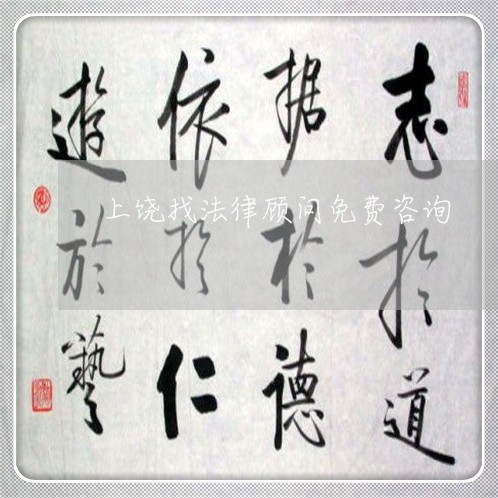 志於道
据於德
依於仁
遊於藝
上饶找法律顾问免费咨询